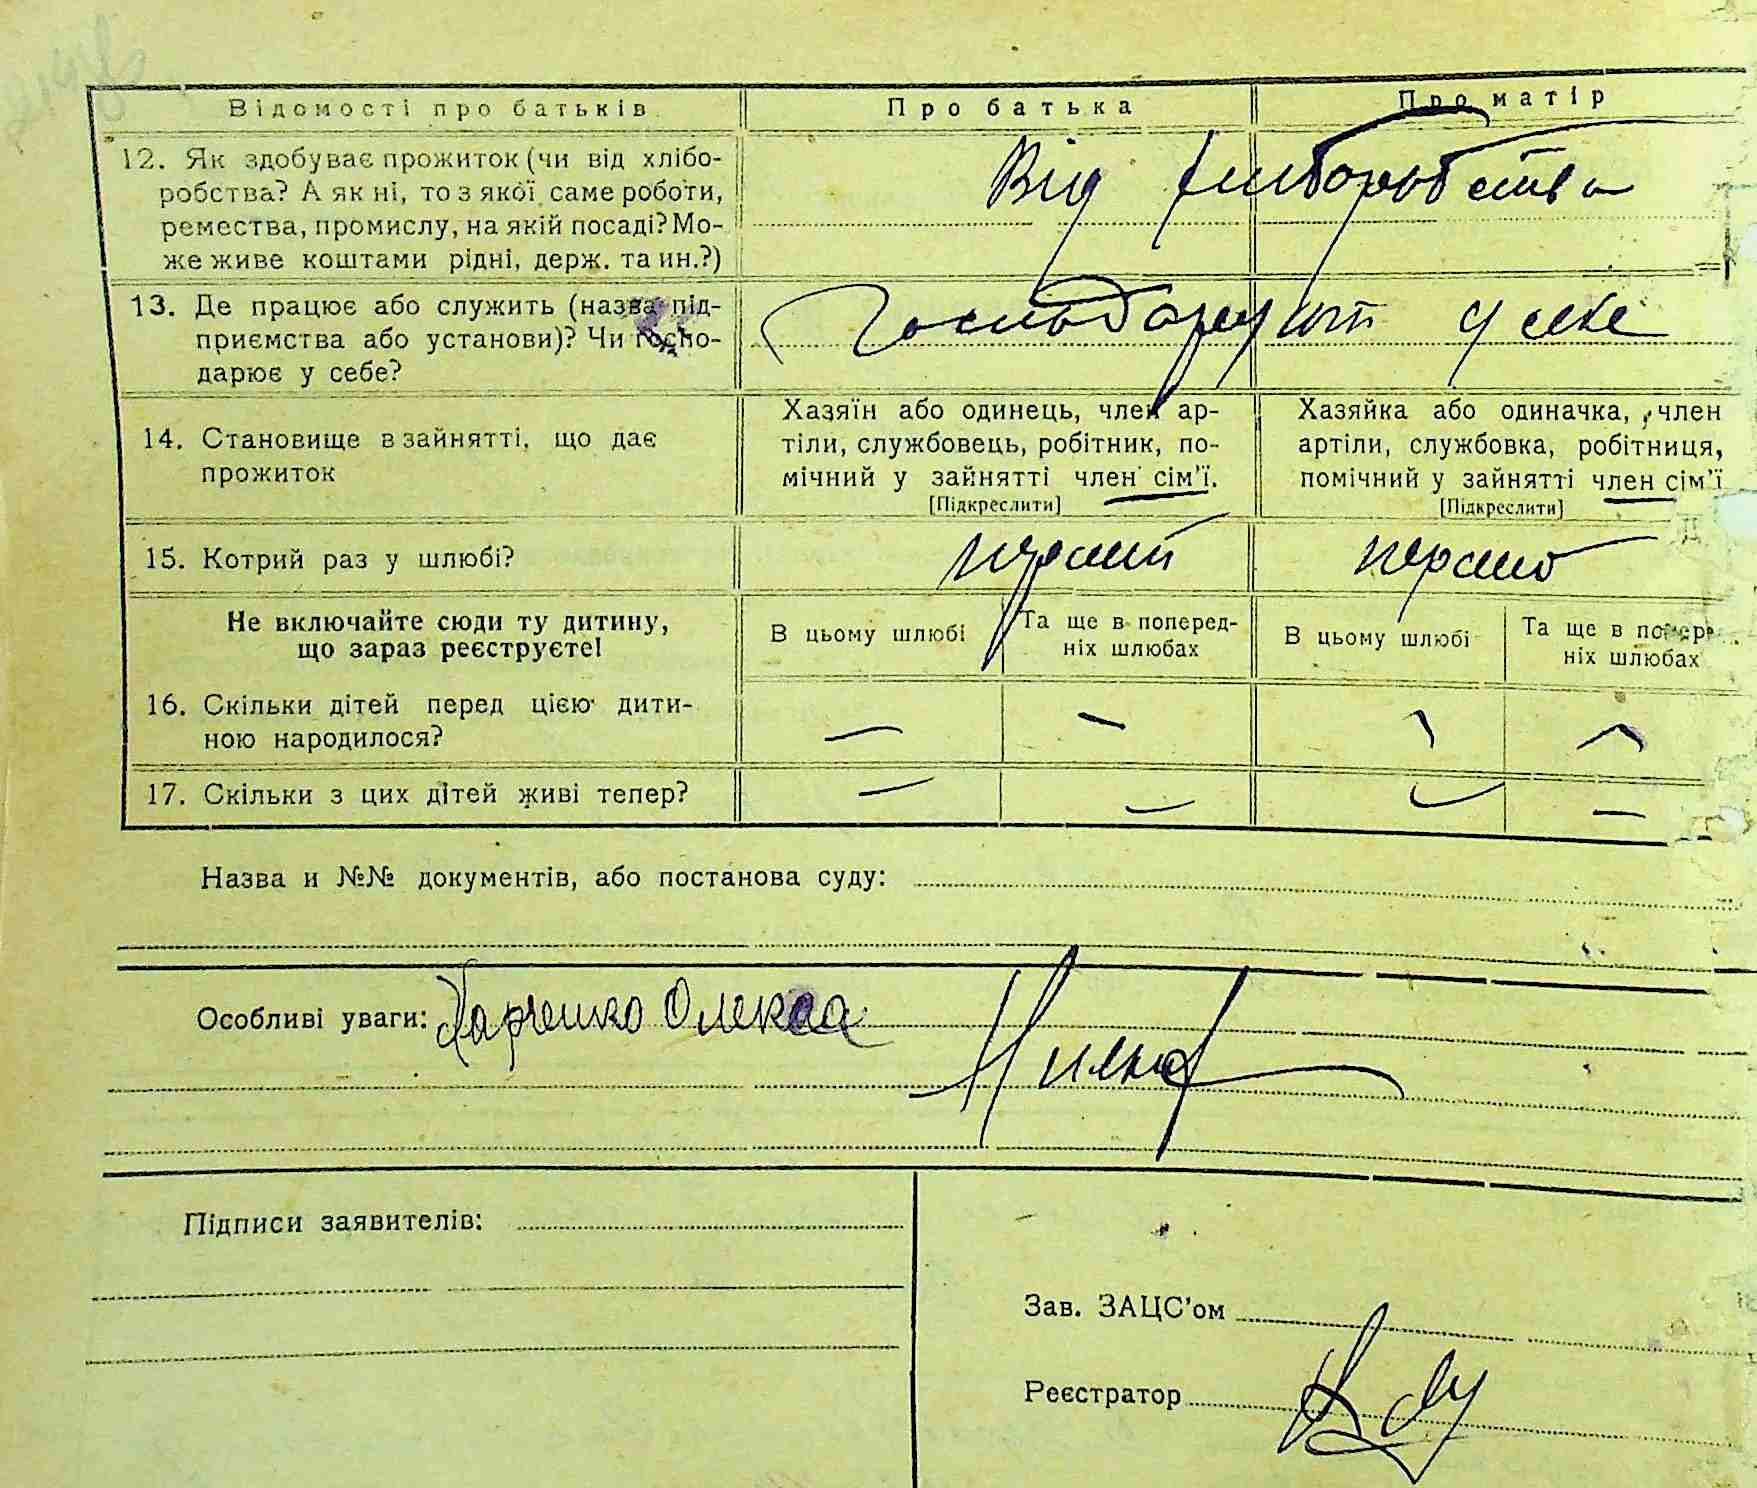 Відомості про батьків Про батька Про матір
12. Як здобуває прожиток (чи від хлібо-
робства? А як ні, то з якої саме роботи,
ремества, промислу, на якій посаді? Мо-
же живе коштами рідні, держ. та ин.?)
Від хліборобства
13. Де працює або служить (назва під-
приємства або установи)? Чи госпо-
дарює у себе?
Господарують у себе
14. Становище в зайнятті, що дає
прожиток
Хазяїн або одинець, член ар-
тіли, службовець, робітник, по-
мічний у зайнятті член сім'ї.
[Підкреслити]
Хазяйка або одиначка, член
артіли, службовка, робітниця,
помічний у зайнятті член сім'ї
[Підкреслити]
15. Котрий раз у шлюбі? перший перше
Не включайте сюди ту дитину,
що зараз реєструєте!
В цьому шлюбі
Та ще в поперед-
ніх шлюбах
В цьому шлюбі
Та ще в попер
ніх шлюбах
16. Скільки дітей перед цією дити-
ною народилося?
— — — —
17. Скільки з цих дітей живі тепер? — — — —
Назва и №№ документів, або постанова суду:
Особливі уваги: Харченко Олекса
Підписи заявителів:
Зав. ЗАЦС'ом
Реєстратор